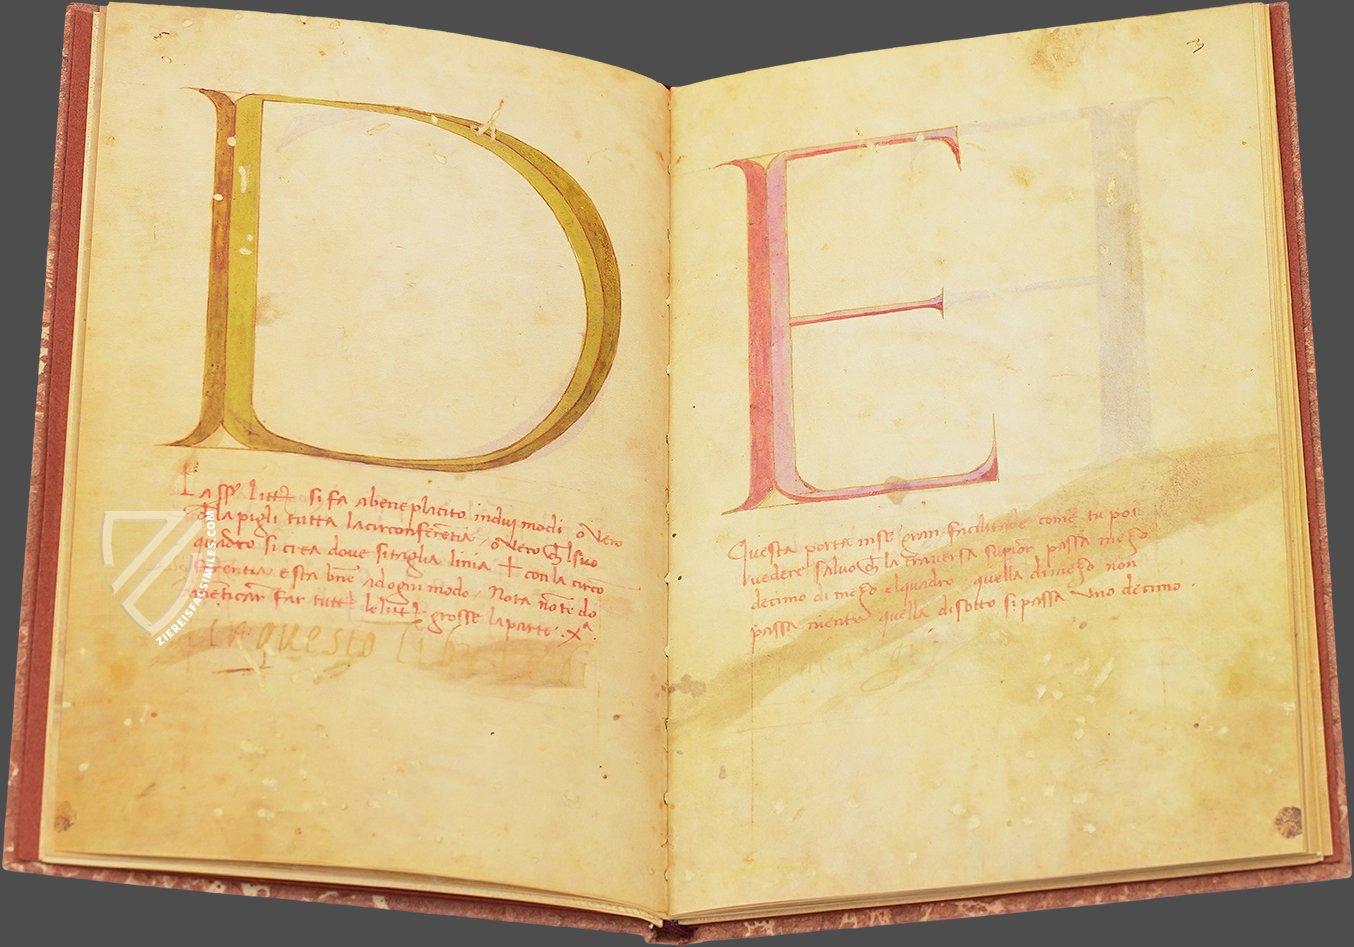 D
La ss. littr si fa a beneplacito indui modi o vero
pigli tutta la circonferentia o vero suo
quadro si crea dove si taglia linia + con la circō
ferentia e sta bñe adogni modo. Nota nō te do
meticar far tutte le littr grosse la parte .xª.
in questo
3
E
Questa porta in se gran facilitade come tu poi
vedere salvo la traversa supior passa mezo
decimo di mezo el quadro. quella di mezo non
passa niente quella di sotto si passa uno decimo.
ZIEREISFACSIMILES.COM